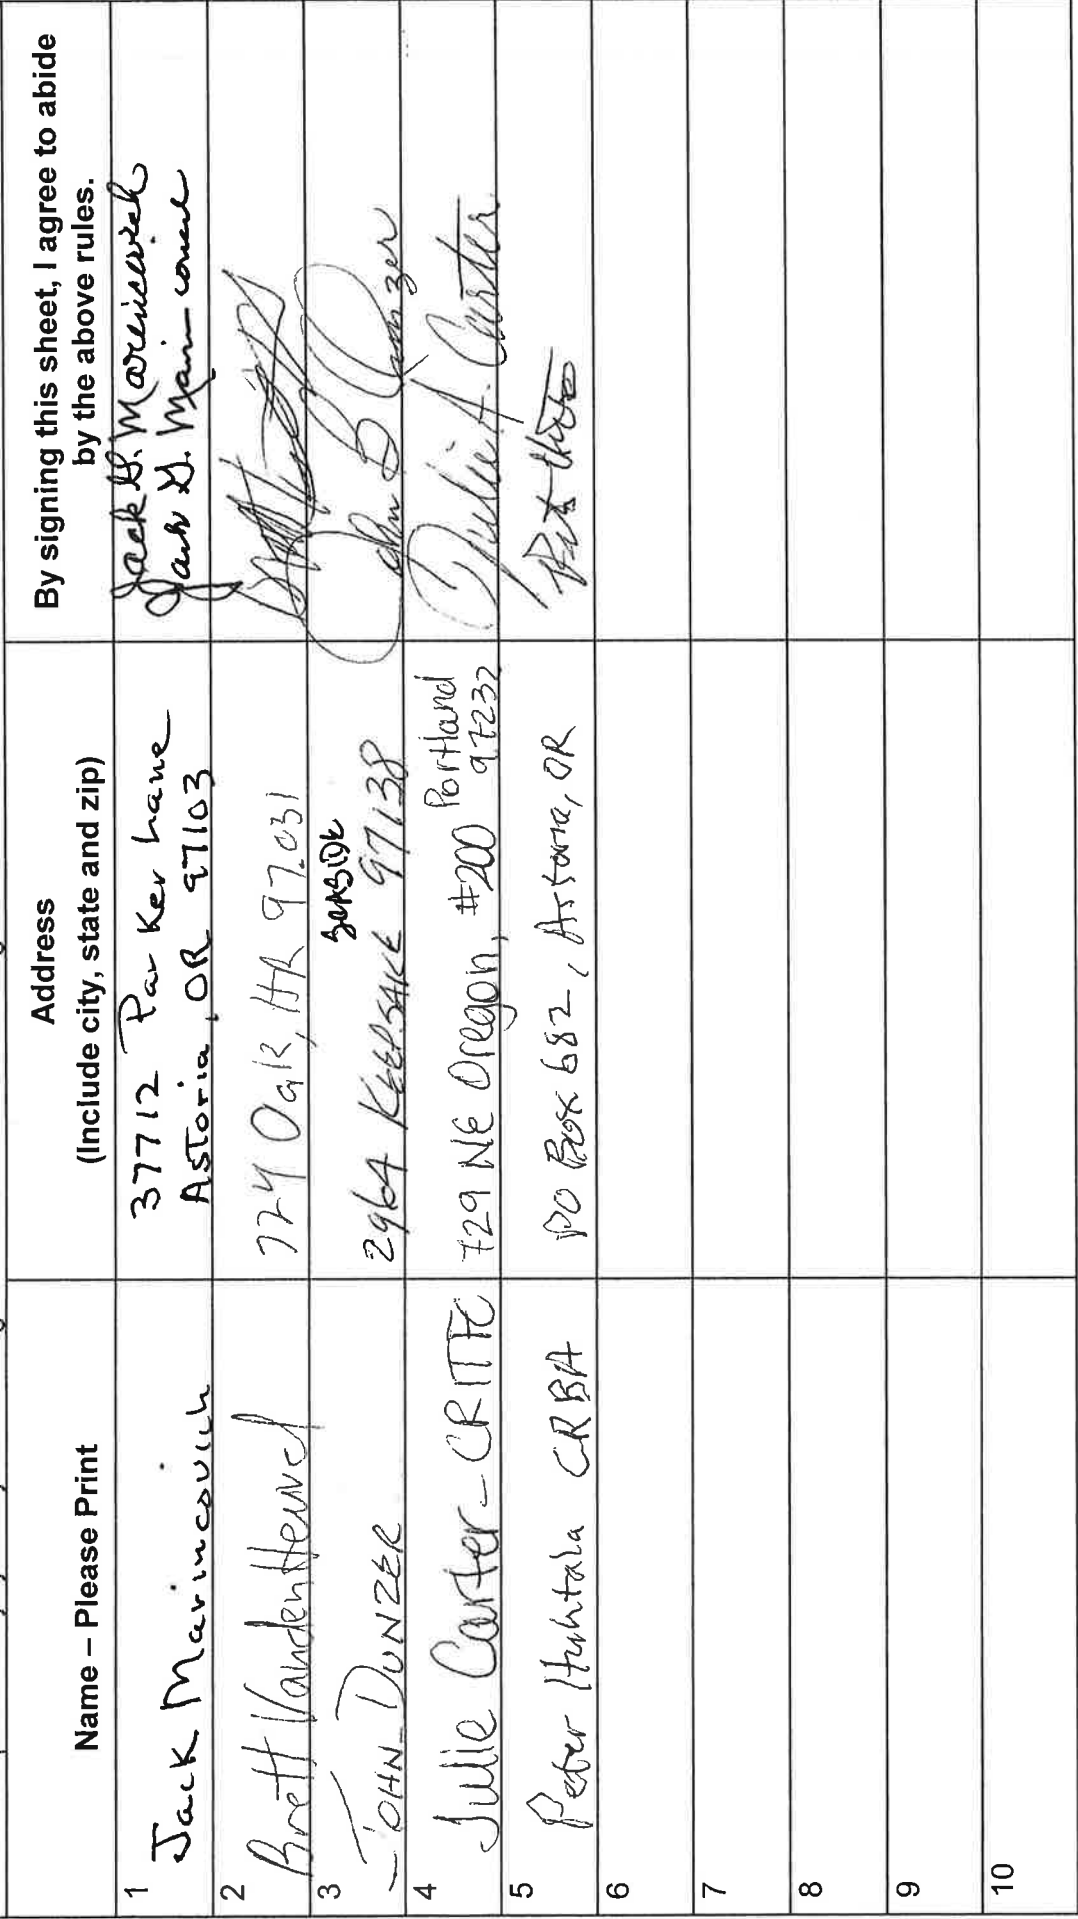 Name – Please Print
Address
(Include city, state and zip)
By signing this sheet, I agree to abide
by the above rules.
1
Jack Marincovich
37712 Parker Lane
Astoria, OR 97103
Jack G. Marincovich
Jack G. Marincovich
2
Brett VandenHeuvel
724 Oak, HR 97031
3
JOHN DUNZER
2964 KEEPSAKE 97138
SEASIDE
John B Dunzer
4
Julie Carter - CRITFC
729 NE Oregon, #200 Portland
97232
Julie A. Carter
5
Peter Huhtala CRBA
PO Box 682, Astoria, OR
6
7
8
9
10